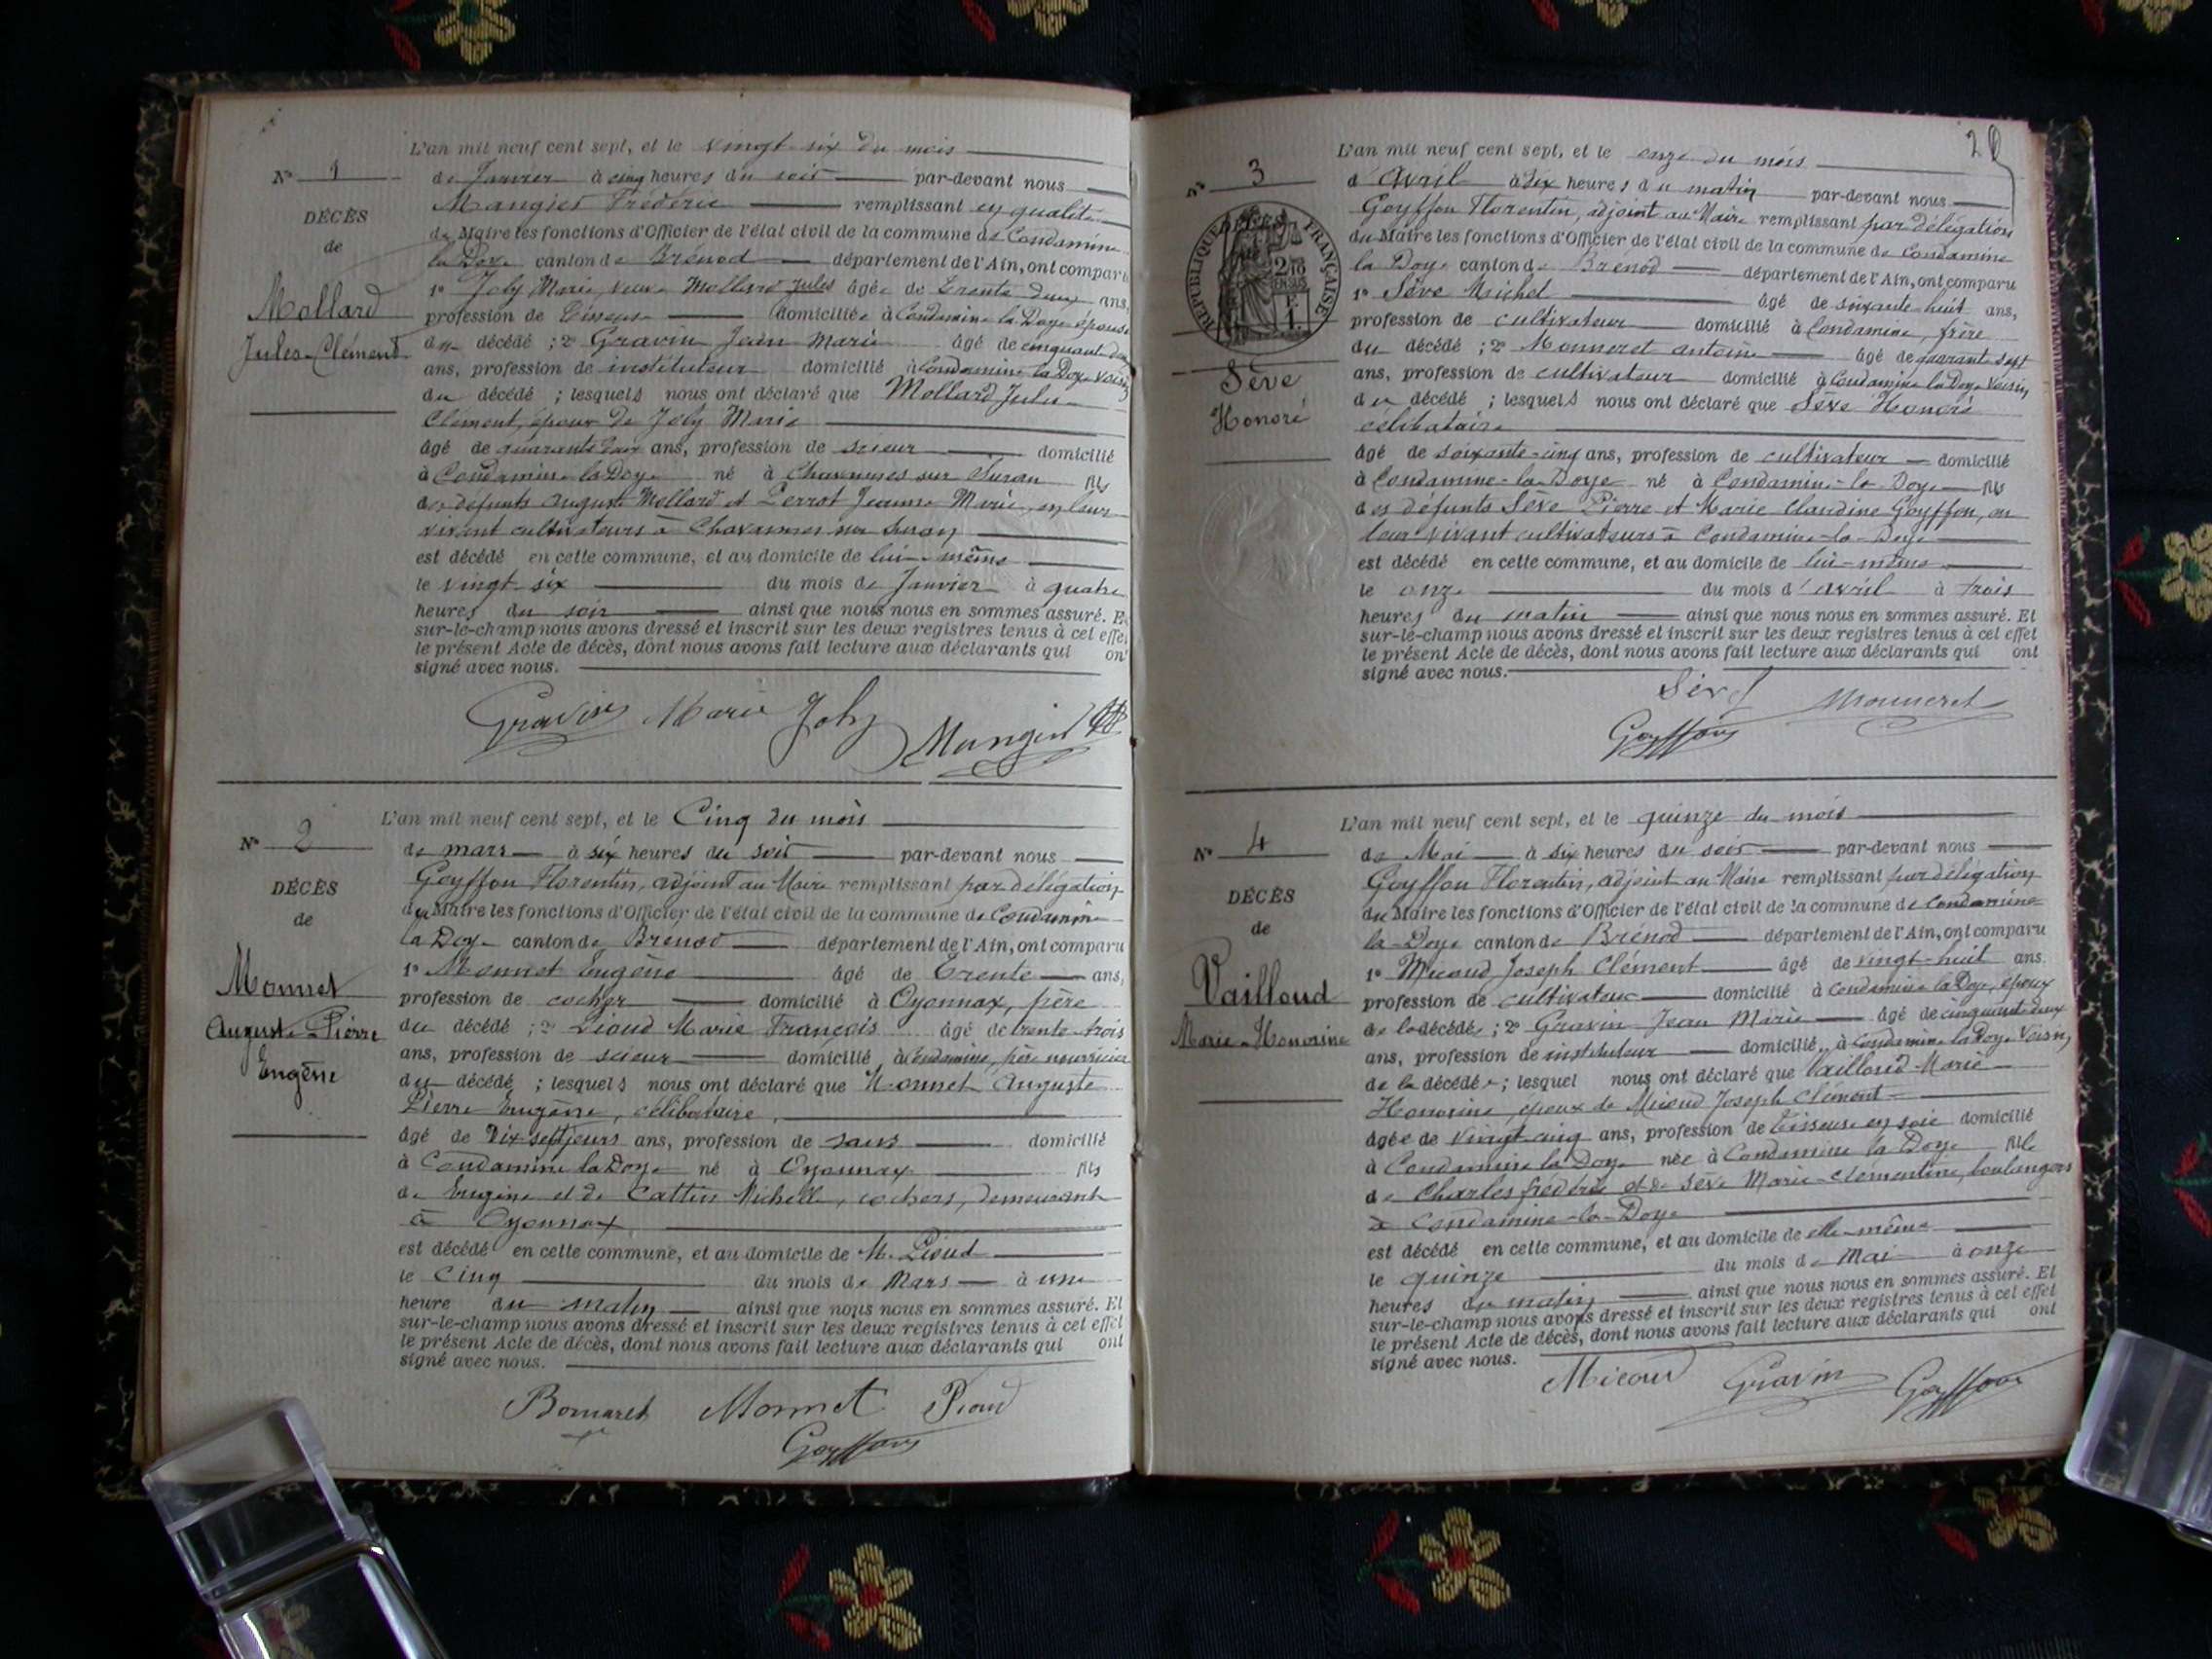 L'an mil neuf cent sept, et le vingt-six du mois
N° 1
de Janvier à cinq heures du soir par-devant nous
Mangier Frédéric remplissant en qualité
DÉCÈS
de
de Maire les fonctions d'Officier de l'état civil de la commune de Condamine
la Doye canton de Brénod département de l'Ain, ont comparu
1° Joly Marie, veuve Mollard Jules âgée de trente deux ans,
Mollard
Jules-Clément
profession de Tisseuse domiciliée à Condamine la Doye épouse
du décédé ; 2° Gravin Jean Marie âgé de cinquante deux
ans, profession de instituteur domicilié à Condamine la Doye voisin
du décédé ; lesquels nous ont déclaré que Mollard Jules
Clément, époux de Joly Marie
âgé de quarante ans, profession de scieur domicilié
à Condamine la Doye né à Chavannes sur Suran fils
des défunts Auguste Mollard et Perrot Jeanne Marie, en leur
vivant cultivateurs à Chavannes sur Suran
est décédé en cette commune, et au domicile de lui-même
le vingt-six du mois de Janvier à quatre
heures du soir ainsi que nous nous en sommes assuré. Et
sur-le-champ nous avons dressé et inscrit sur les deux registres tenus à cet effet
le présent Acte de décès, dont nous avons fait lecture aux déclarants qui ont
signé avec nous.
Gravin Marie Joly
L'an mil neuf cent sept, et le Cinq du mois
N° 2
de mars à six heures du soir par-devant nous
Goyffon Florentin, adjoint au Maire remplissant par délégation
DÉCÈS
de
du Maire les fonctions d'Officier de l'état civil de la commune de Condamine
la Doye canton de Brénod département de l'Ain, ont comparu
1° Monnet Eugène âgé de Trente ans,
Monnet
Auguste Pierre
Eugène
profession de cocher domicilié à Oyonnax, père
du décédé ; 2° Pioud Marie François âgé de trente-trois
ans, profession de scieur domicilié à Condamine, père nourricier
du décédé ; lesquels nous ont déclaré que Monnet Auguste
Pierre Eugène, célibataire,
âgé de Dix-sept jours ans, profession de sans domicilié
à Condamine la Doye né à Oyonnax fils
de Eugène et de Cattin Michelle, cochers, demeurant
à Oyonnax
est décédé en cette commune, et au domicile de M. Pioud
le Cinq du mois de Mars à une
heure du matin ainsi que nous nous en sommes assuré. Et
sur-le-champ nous avons dressé et inscrit sur les deux registres tenus à cet effet
le présent Acte de décès, dont nous avons fait lecture aux déclarants qui ont
signé avec nous.
Monnet Pioud
Goyffon
L'an mil neuf cent sept, et le onze du mois
N° 3
d'avril à dix heures du matin par-devant nous
Goyffon Florentin, adjoint au Maire remplissant par délégation
RÉPUBLIQUE FRANÇAISE
DÉCÈS
du Maire les fonctions d'Officier de l'état civil de la commune de Condamine
la Doye canton de Brénod département de l'Ain, ont comparu
1° Sève Michel âgé de soixante-huit ans,
profession de cultivateur domicilié à Condamine, frère
du décédé ; 2° Monneret Antoine âgé de quarante sept
Sève
Honoré
ans, profession de cultivateur domicilié à Condamine la Doye voisin,
du décédé ; lesquels nous ont déclaré que Sève Honoré
célibataire
âgé de soixante-cinq ans, profession de cultivateur domicilié
à Condamine-la-Doye né à Condamine-la-Doye fils
des défunts Sève Pierre et Marie Claudine Goyffon, en
leur vivant cultivateurs à Condamine-la-Doye
est décédé en cette commune, et au domicile de lui-même
le onze du mois d'avril à trois
heures du matin ainsi que nous nous en sommes assuré. Et
sur-le-champ nous avons dressé et inscrit sur les deux registres tenus à cet effet
le présent Acte de décès, dont nous avons fait lecture aux déclarants qui ont
signé avec nous.
Sève Monneret
Goyffon
L'an mil neuf cent sept, et le quinze du mois
N° 4
de Mai à six heures du soir par-devant nous
Goyffon Florentin, adjoint au Maire remplissant par délégation
DÉCÈS
de
du Maire les fonctions d'Officier de l'état civil de la commune de Condamine
la-Doye canton de Brénod département de l'Ain, ont comparu
1° Micoud Joseph Clément âgé de vingt-huit ans
Vailloud
Marie-Honorine
profession de cultivateur domicilié à Condamine la Doye, époux
de la décédée ; 2° Gravin Jean Marie âgé de cinquante deux
ans, profession de instituteur domicilié à Condamine la Doye voisin,
de la décédée ; lesquel nous ont déclaré que Vailloud Marie
Honorine, époux de Micoud Joseph Clément
âgée de vingt-cinq ans, profession de Tisseuse en soie domicilié
à Condamine la Doye née à Condamine la Doye fille
de Charles frédéric et de Sève Marie-Clémentine, boulangers
à Condamine-la-Doye
est décédé en cette commune, et au domicile de elle-même
le quinze du mois de Mai à onze
heures du matin ainsi que nous nous en sommes assuré. Et
sur-le-champ nous avons dressé et inscrit sur les deux registres tenus à cet effet
le présent Acte de décès, dont nous avons fait lecture aux déclarants qui ont
signé avec nous.
Micoud Gravin Goyffon